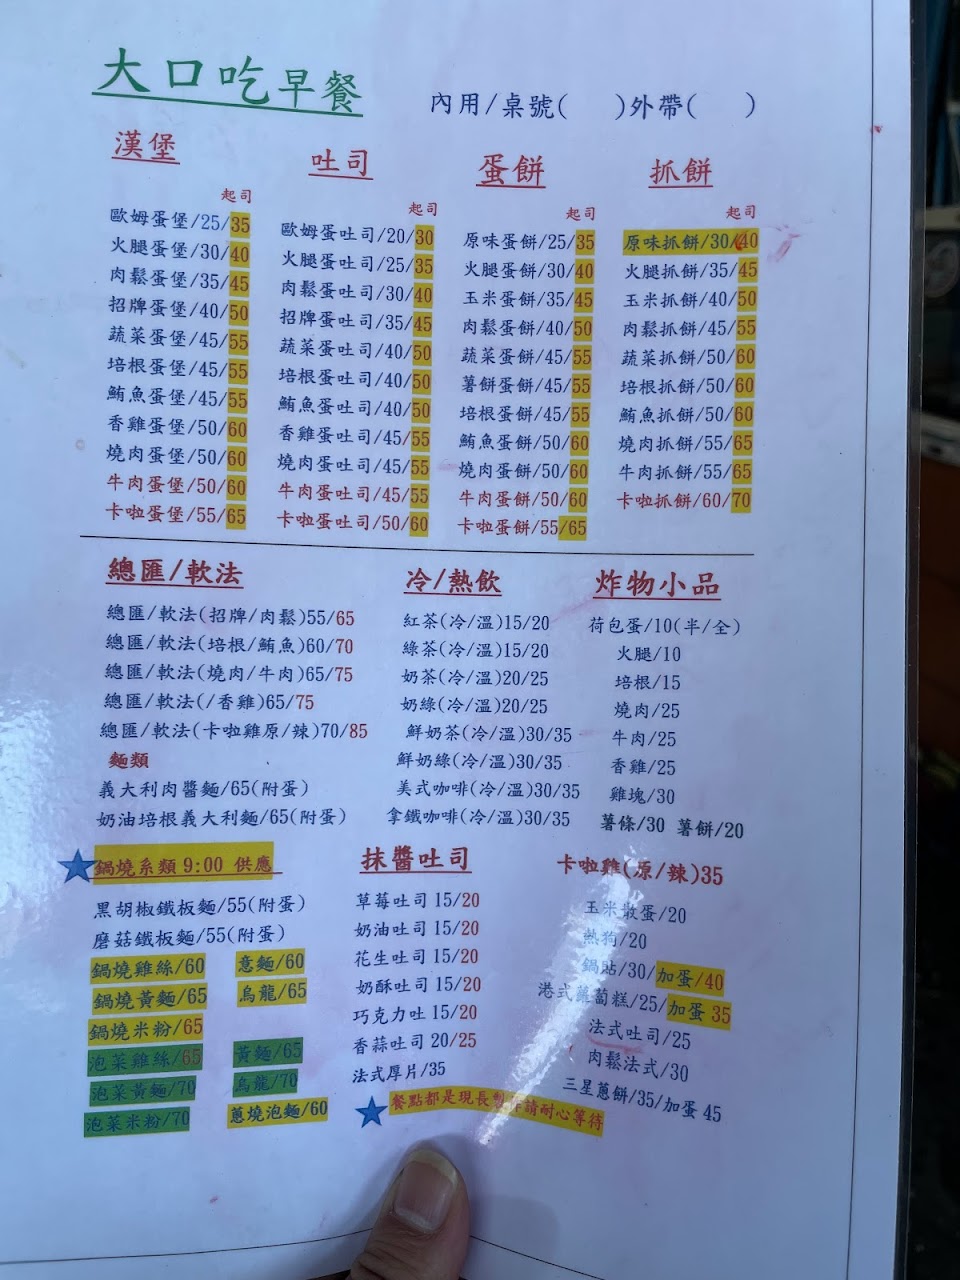 大口吃早餐
內用/桌號(　　)外帶(　　)
漢堡
起司
歐姆蛋堡/25/35
火腿蛋堡/30/40
肉鬆蛋堡/35/45
招牌蛋堡/40/50
蔬菜蛋堡/45/55
培根蛋堡/45/55
鮪魚蛋堡/45/55
香雞蛋堡/50/60
燒肉蛋堡/50/60
牛肉蛋堡/50/60
卡啦蛋堡/55/65
吐司
起司
歐姆蛋吐司/20/30
火腿蛋吐司/25/35
肉鬆蛋吐司/30/40
招牌蛋吐司/35/45
蔬菜蛋吐司/40/50
培根蛋吐司/40/50
鮪魚蛋吐司/40/50
香雞蛋吐司/45/55
燒肉蛋吐司/45/55
牛肉蛋吐司/45/55
卡啦蛋吐司/50/60
蛋餅
起司
原味蛋餅/25/35
火腿蛋餅/30/40
玉米蛋餅/35/45
肉鬆蛋餅/40/50
蔬菜蛋餅/45/55
薯餅蛋餅/45/55
培根蛋餅/45/55
鮪魚蛋餅/50/60
燒肉蛋餅/50/60
牛肉蛋餅/50/60
卡啦蛋餅/55/65
抓餅
起司
原味抓餅/30/40
火腿抓餅/35/45
玉米抓餅/40/50
肉鬆抓餅/45/55
蔬菜抓餅/50/60
培根抓餅/50/60
鮪魚抓餅/50/60
燒肉抓餅/55/65
牛肉抓餅/55/65
卡啦抓餅/60/70
總匯/軟法
總匯/軟法(招牌/肉鬆)55/65
總匯/軟法(培根/鮪魚)60/70
總匯/軟法(燒肉/牛肉)65/75
總匯/軟法(/香雞)65/75
總匯/軟法(卡啦雞原/辣)70/85
麵類
義大利肉醬麵/65(附蛋)
奶油培根義大利麵/65(附蛋)
鍋燒系類 9:00 供應
黑胡椒鐵板麵/55(附蛋)
磨菇鐵板麵/55(附蛋)
鍋燒雞絲/60 意麵/60
鍋燒黃麵/65 烏龍/65
鍋燒米粉/65
泡菜雞絲/65 黃麵/65
泡菜黃麵/70 烏龍/70
泡菜米粉/70 蔥燒泡麵/60
冷/熱飲
紅茶(冷/溫)15/20
綠茶(冷/溫)15/20
奶茶(冷/溫)20/25
奶綠(冷/溫)20/25
鮮奶茶(冷/溫)30/35
鮮奶綠(冷/溫)30/35
美式咖啡(冷/溫)30/35
拿鐵咖啡(冷/溫)30/35
抹醬吐司
草莓吐司 15/20
奶油吐司 15/20
花生吐司 15/20
奶酥吐司 15/20
巧克力吐 15/20
香蒜吐司 20/25
法式厚片/35
炸物小品
荷包蛋/10(半/全)
火腿/10
培根/15
燒肉/25
牛肉/25
香雞/25
雞塊/30
薯條/30 薯餅/20
卡啦雞(原/辣)35
玉米散蛋/20
熱狗/20
鍋貼/30/加蛋/40
港式蘿蔔糕/25/加蛋 35
法式吐司/25
肉鬆法式/30
三星蔥餅/35/加蛋 45
餐點都是現長製作請耐心等待